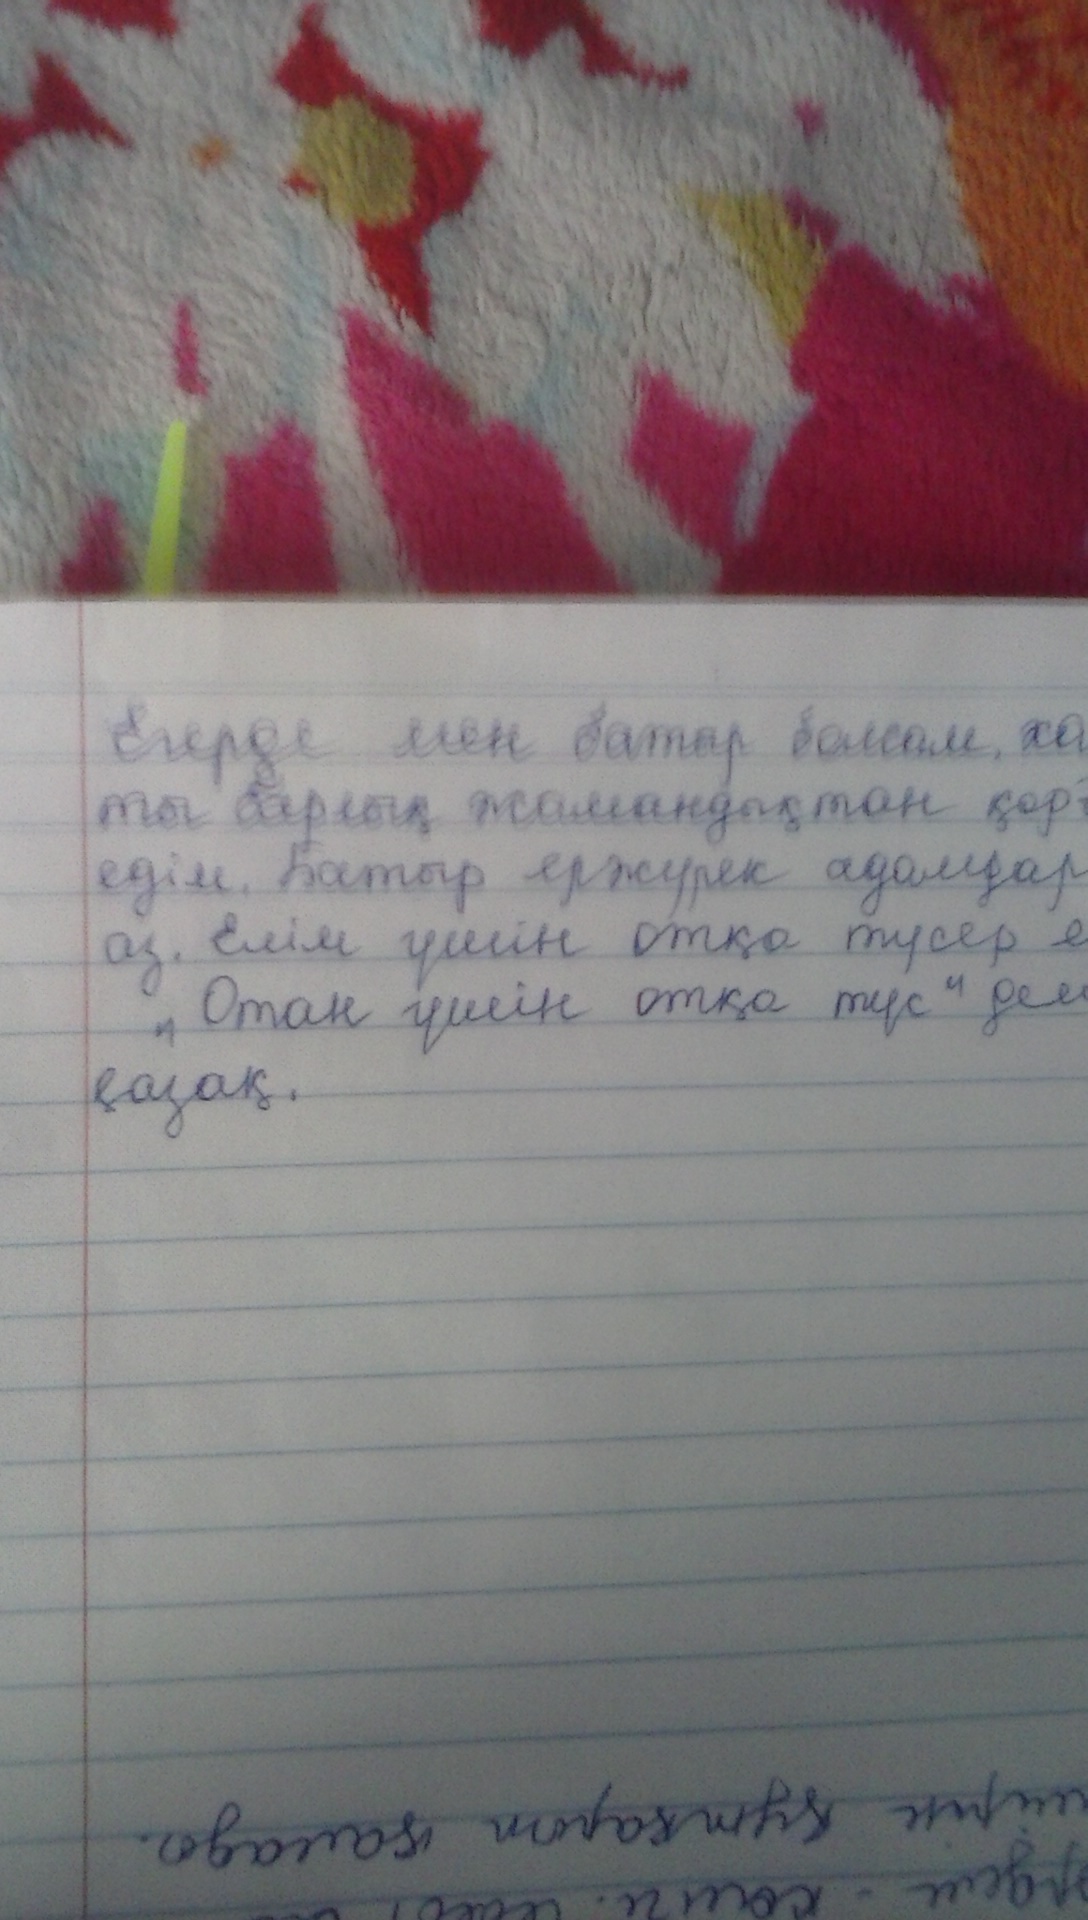 Егерде мен батыр болсам, ха
ты барлық жамандықтан қор
едім. Батыр ержүрек адамдар
аз. Елім үшін отқа түсер е
„Отан үшін отқа түс“ деп
қазақ.
құтқарып қалады.